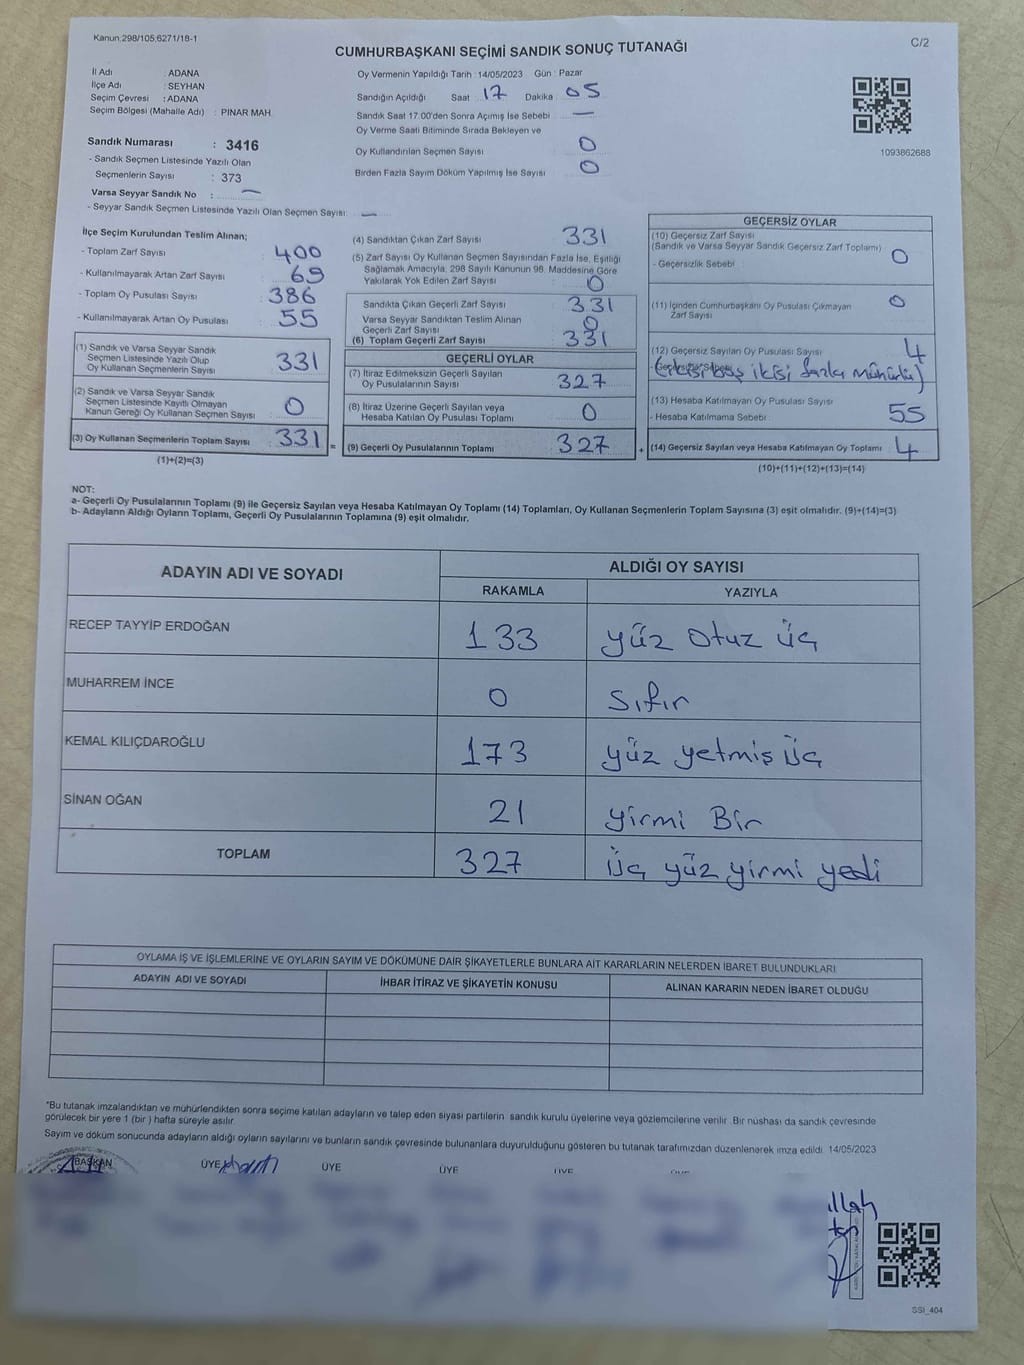 Kanun.298/105,6271/18-1
C/2
CUMHURBAŞKANI SEÇİMİ SANDIK SONUÇ TUTANAĞI
İl Adı : ADANA
İlçe Adı : SEYHAN
Seçim Çevresi : ADANA
Seçim Bölgesi (Mahalle Adı) : PINAR MAH.
Oy Vermenin Yapıldığı Tarih : 14/05/2023 Gün : Pazar
Sandığın Açıldığı Saat 17 Dakika 05
Sandık Saat 17.00'den Sonra Açımış İse Sebebi —
Oy Verme Saati Bitiminde Sırada Bekleyen ve
Oy Kullandırılan Seçmen Sayısı 0
Birden Fazla Sayım Döküm Yapılmış İse Sayısı 0
1093862688
Sandık Numarası : 3416
- Sandık Seçmen Listesinde Yazılı Olan
Seçmenlerin Sayısı : 373
Varsa Seyyar Sandık No : —
- Seyyar Sandık Seçmen Listesinde Yazılı Olan Seçmen Sayısı: —
İlçe Seçim Kurulundan Teslim Alınan;
- Toplam Zarf Sayısı : 400
- Kullanılmayarak Artan Zarf Sayısı : 69
- Toplam Oy Pusulası Sayısı : 386
- Kullanılmayarak Artan Oy Pusulası : 55
(1) Sandık ve Varsa Seyyar Sandık
Seçmen Listesinde Yazılı Olup
Oy Kullanan Seçmenlerin Sayısı 331
(2) Sandık ve Varsa Seyyar Sandık
Seçmen Listesinde Kayıtlı Olmayan
Kanun Gereği Oy Kullanan Seçmen Sayısı 0
(3) Oy Kullanan Seçmenlerin Toplam Sayısı 331 =
(1)+(2)=(3)
(4) Sandıktan Çıkan Zarf Sayısı 331
(5) Zarf Sayısı Oy Kullanan Seçmen Sayısından Fazla İse, Eşitliği
Sağlamak Amacıyla, 298 Sayılı Kanunun 98. Maddesine Göre
Yakılarak Yok Edilen Zarf Sayısı 0
Sandıkta Çıkan Geçerli Zarf Sayısı 331
Varsa Seyyar Sandıktan Teslim Alınan
Geçerli Zarf Sayısı 0
(6) Toplam Geçerli Zarf Sayısı 331
GEÇERLİ OYLAR
(7) İtiraz Edilmeksizin Geçerli Sayılan
Oy Pusulalarının Sayısı 327
(8) İtiraz Üzerine Geçerli Sayılan veya
Hesaba Katılan Oy Pusulası Toplamı 0
(9) Geçerli Oy Pusulalarının Toplamı 327 +
GEÇERSİZ OYLAR
(10) Geçersiz Zarf Sayısı
(Sandık ve Varsa Seyyar Sandık Geçersiz Zarf Toplamı) 0
- Geçersizlik Sebebi
(11) İçinden Cumhurbaşkanı Oy Pusulası Çıkmayan
Zarf Sayısı 0
(12) Geçersiz Sayılan Oy Pusulası Sayısı 4
boş ikisi fazla mühürlü)
(13) Hesaba Katılmayan Oy Pusulası Sayısı 55
- Hesaba Katılmama Sebebi
(14) Geçersiz Sayılan veya Hesaba Katılmayan Oy Toplamı 4
(10)+(11)+(12)+(13)=(14)
NOT:
a- Geçerli Oy Pusulalarının Toplamı (9) ile Geçersiz Sayılan veya Hesaba Katılmayan Oy Toplamı (14) Toplamları, Oy Kullanan Seçmenlerin Toplam Sayısına (3) eşit olmalıdır. (9)+(14)=(3)
b- Adayların Aldığı Oyların Toplamı, Geçerli Oy Pusulalarının Toplamına (9) eşit olmalıdır.
ADAYIN ADI VE SOYADI
ALDIĞI OY SAYISI
RAKAMLA YAZIYLA
RECEP TAYYİP ERDOĞAN 133 yüz otuz üç
MUHARREM İNCE 0 sıfır
KEMAL KILIÇDAROĞLU 173 yüz yetmiş üç
SİNAN OĞAN 21 yirmi Bir
TOPLAM 327 üç yüz yirmi yedi
OYLAMA İŞ VE İŞLEMLERİNE VE OYLARIN SAYIM VE DÖKÜMÜNE DAİR ŞİKAYETLERLE BUNLARA AİT KARARLARIN NELERDEN İBARET BULUNDUKLARI
ADAYIN ADI VE SOYADI İHBAR İTİRAZ VE ŞİKAYETİN KONUSU ALINAN KARARIN NEDEN İBARET OLDUĞU
*Bu tutanak imzalandıktan ve mühürlendikten sonra seçime katılan adayların ve talep eden siyasi partilerin sandık kurulu üyelerine veya gözlemcilerine verilir. Bir nüshası da sandık çevresinde
görülecek bir yere 1 (bir) hafta süreyle asılır.
Sayım ve döküm sonucunda adayların aldığı oyların sayılarını ve bunların sandık çevresinde bulunanlara duyurulduğunu gösteren bu tutanak tarafımızdan düzenlenerek imza edildi. 14/05/2023
BAŞKAN ÜYE ÜYE ÜYE ÜYE
SSİ_404